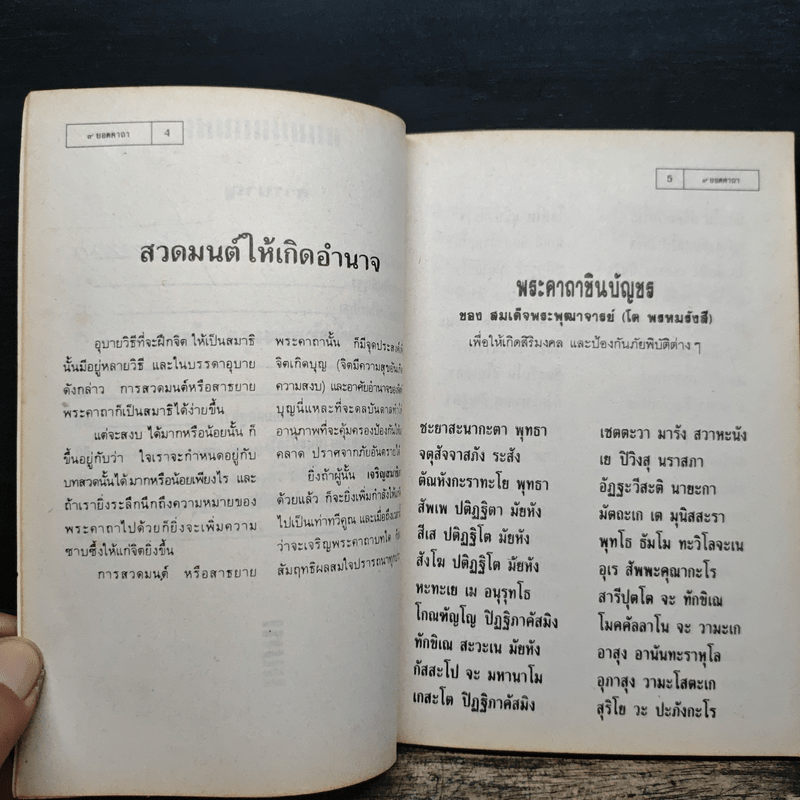 ๙ ยอดคาถา 4
สวดมนต์ให้เกิดอำนาจ
อุบายวิธีที่จะฝึกจิต ให้เป็นสมาธิ
นั้นมีอยู่หลายวิธี และในบรรดาอุบาย
ดังกล่าว การสวดมนต์หรือสาธยาย
พระคาถาก็เป็นสมาธิได้ง่ายขึ้น
แต่จะสงบ ได้มากหรือน้อยนั้น ก็
ขึ้นอยู่กับว่า ใจเราจะกำหนดอยู่กับ
บทสวดนั้นได้มากหรือน้อยเพียงไร และ
ถ้าเรายิ่งระลึกนึกถึงความหมายของ
พระคาถาไปด้วยก็ยิ่งจะเพิ่มความ
ซาบซึ้งให้แก่จิตยิ่งขึ้น
การสวดมนต์ หรือสาธยาย
พระคาถานั้น ก็มีจุดประสงค์
จิตเกิดบุญ (จิตมีความสุขอัน
ความสงบ) และอาศัยอำนาจของ
บุญนี่แหละที่จะดลบันดาล
อานุภาพที่จะคุ้มครองป้องกัน
คลาด ปราศจากภัยอันตราย
ยิ่งถ้าผู้นั้น
ด้วยแล้ว ก็จะยิ่งเพิ่มกำลังให้
ไปเป็นเท่าทวีคูณ และเมื่อถึง
ว่าจะเจริญพระคาถาบทใด
สัมฤทธิผลสมใจปรารถนา
5 ๙ ยอดคาถา
พระคาถาชินบัญชร
ของ สมเด็จพระพุฒาจารย์ (โต พรหมรังสี)
เพื่อให้เกิดสิริมงคล และป้องกันภัยพิบัติต่าง ๆ
ชะยาสะนากะตา พุทธา เชตตะวา มารัง สวาหะนัง
จตุสัจจาสภัง ระสัง เย ปิวิงสุ นราสภา
ตัณหังกะราทะโย พุทธา อัฏฐะวีสะติ นายะกา
สัพเพ ปติฏฐิตา มัยหัง มัตถะเก เต มุนิสสะรา
สีเส ปติฏฐิโต มัยหัง พุทโธ ธัมโม ทะวิโลจะเน
สังโฆ ปติฏฐิโต มัยหัง อุเร สัพพะคุณากะโร
หะทะเย เม อนุรุทโธ สารีปุตโต จะ ทักขิเณ
โกณฑัญโญ ปิฏฐิภาคัสมิง โมคคัลลาโน จะ วามะเก
ทักขิเณ สะวะเน มัยหัง อาสุง อานันทะราหุโล
กัสสะโป จะ มหานาโม อุภาสุง วามะโสตะเก
เกสะโต ปิฏฐิภาคัสมิง สุริโย วะ ปะภังกะโร